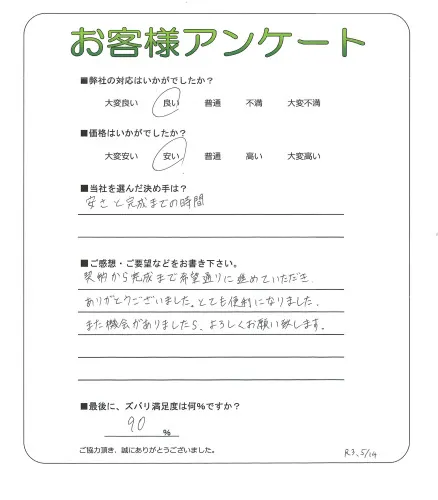 お客様アンケート
■弊社の対応はいかがでしたか?
大変良い 良い 普通 不満 大変不満
■価格はいかがでしたか?
大変安い 安い 普通 高い 大変高い
■当社を選んだ決め手は?
安さと完成までの時間
■ご感想・ご要望などをお書き下さい。
契約から完成まで希望通りに進めていただき
ありがとうございました。とても便利になりました。
また機会がありましたら、よろしくお願い致します。
■最後に、ズバリ満足度は何%ですか?
90 %
ご協力頂き、誠にありがとうございました。
R3.5/14